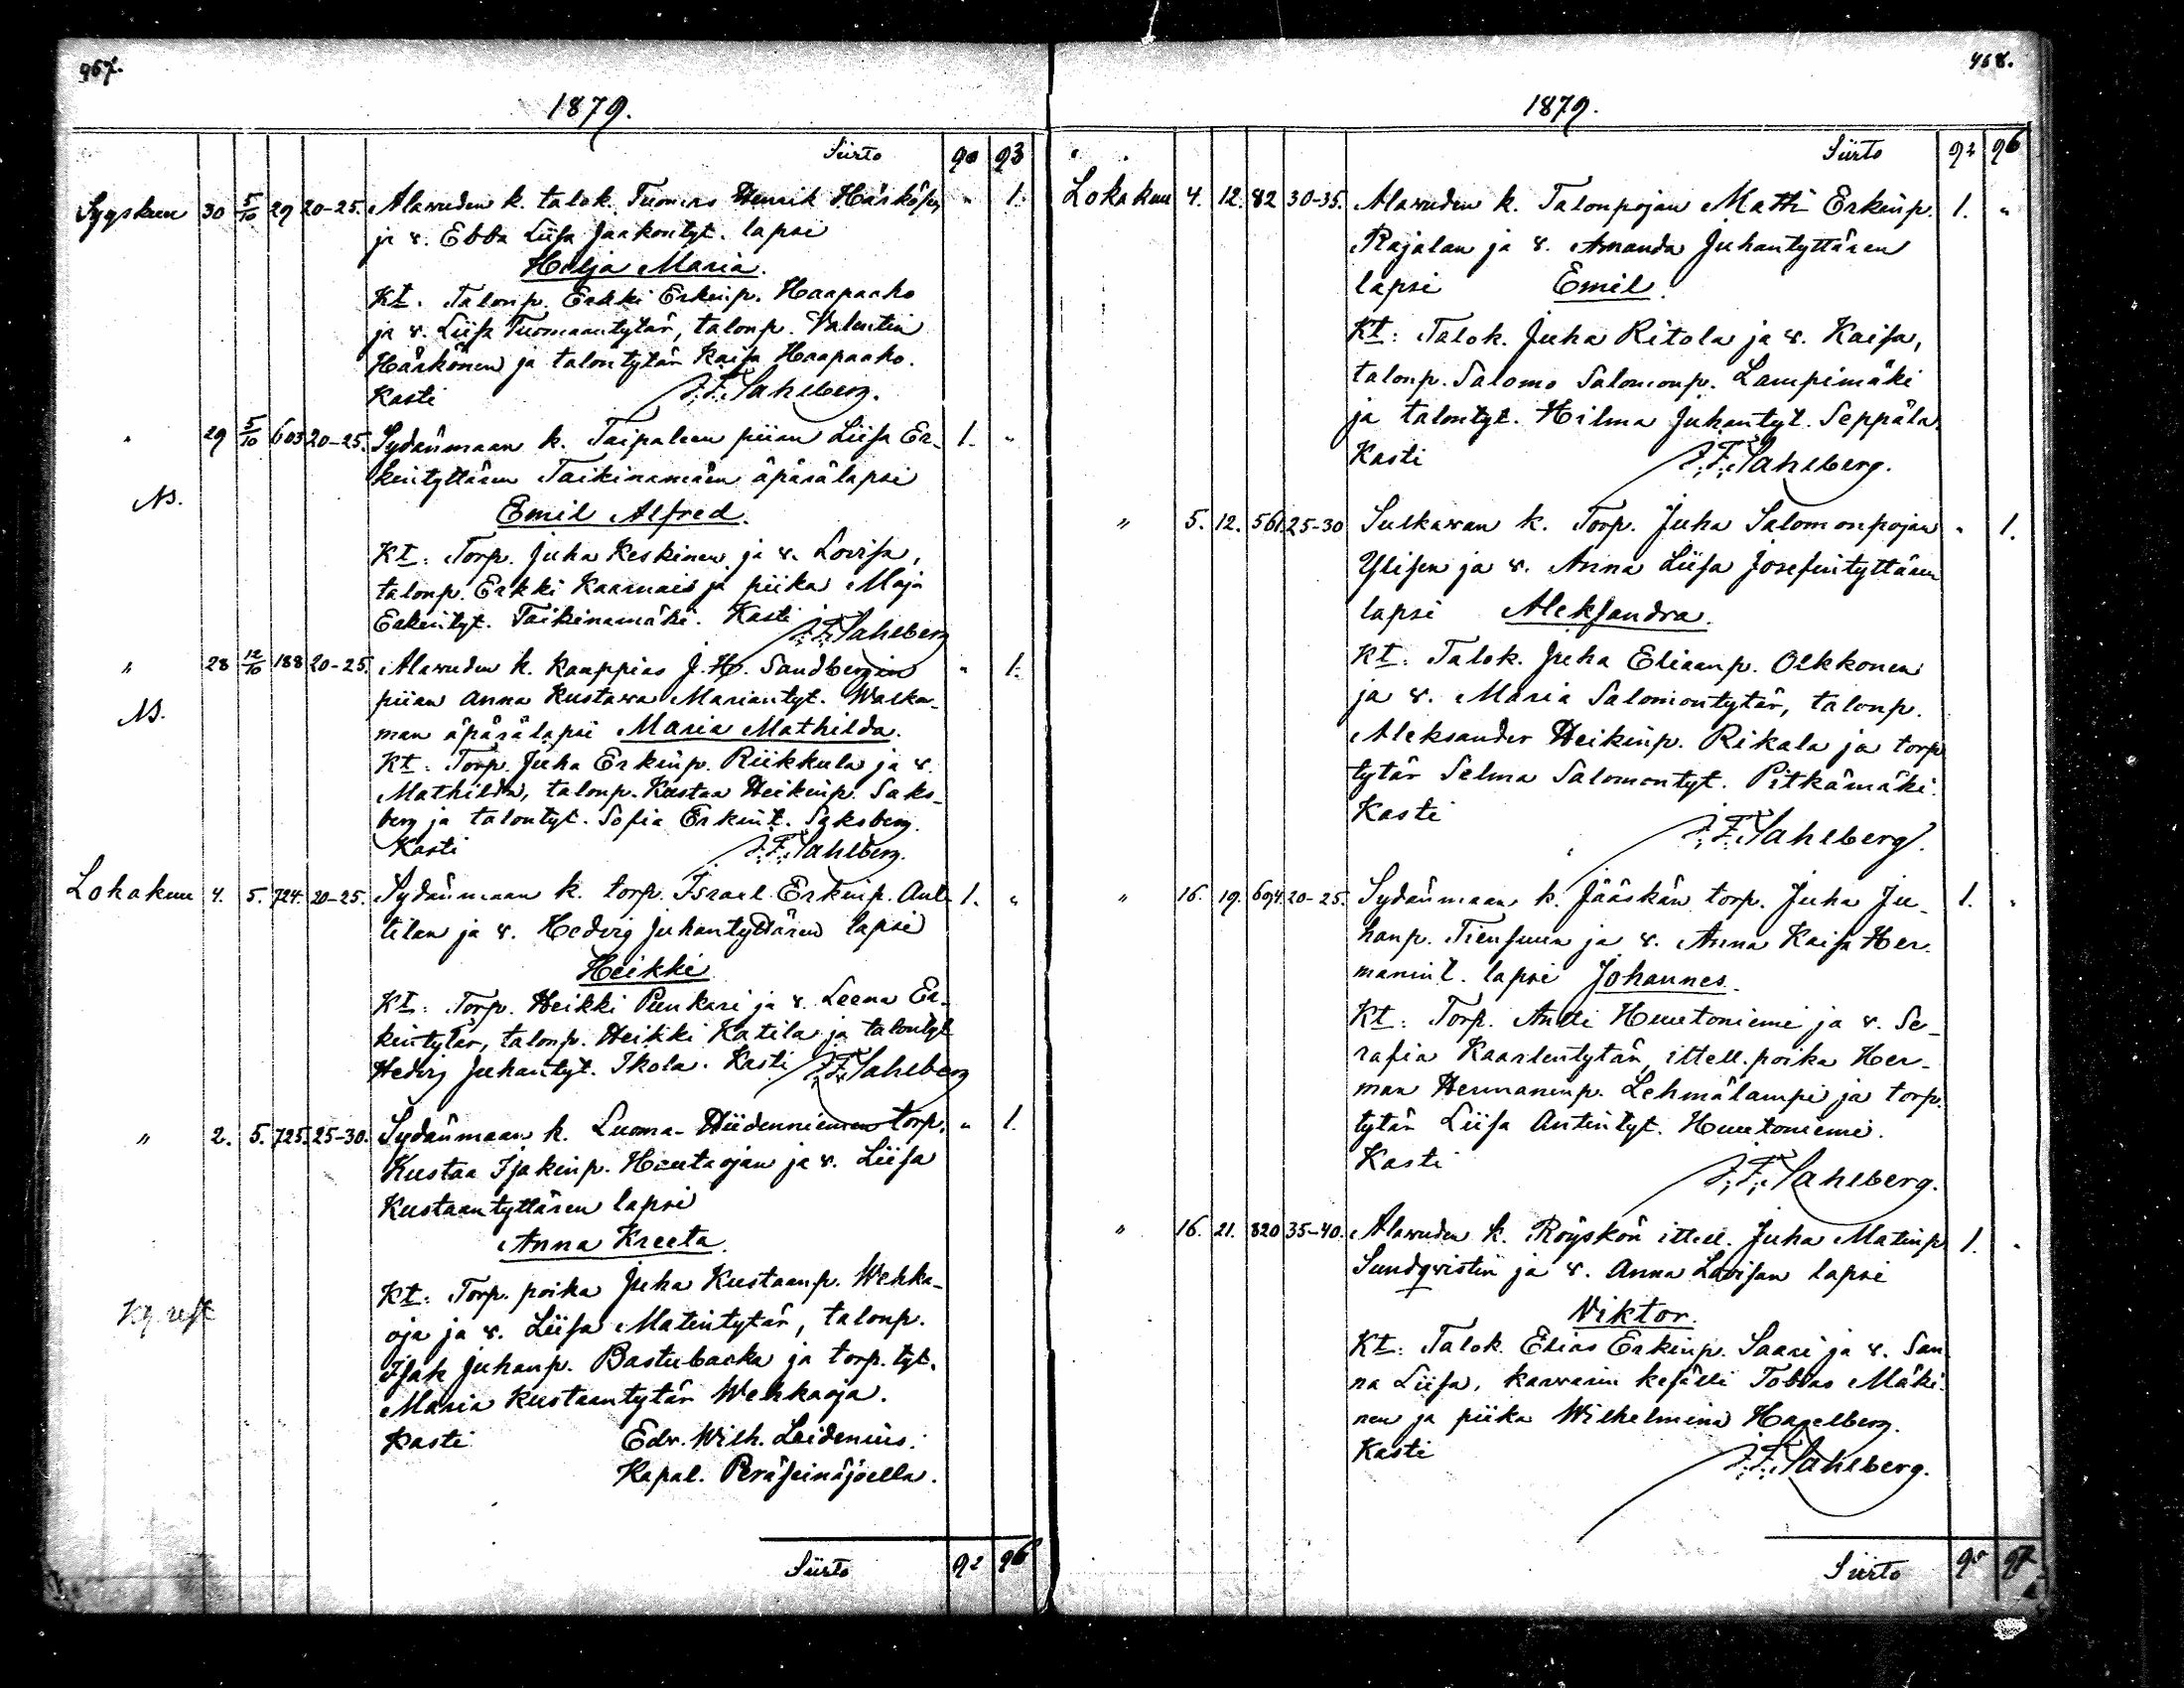 467.
1879.
Siirto 90 93
Syyskuu 30 5/10 29 20-25. Alawuden k. talok. Tuomas Henrik Härköp.
ja v. Ebba Liisa Jaakontyt. lapsi " 1.
Hilja Maria.
Kt. Talonp. Erkki Erkinp. Haapaaho
ja v. Liisa Tuomaantytär, talonp. Valentin
Härkönen ja talontytär Kaisa Haapaaho.
Kasti J. F. Sahlberg.
" 29 5/10 603 20-25. Sydänmaan k. Taipaleen piian Liisa Er- 1. "
kintyttären Taikinamäen äpärälapsi
NB.
Emil Alfred.
Kt: Torp. Juha Keskinen ja v. Lovisa,
talonp. Erkki Kaarnais ja piika Maja
Erkintyt. Taikinamäki. Kasti J. F. Sahlberg
" 28 12/10 188 20-25. Alawuden k. Kauppias J. H. Sandbergin " 1.
piian Anna Kustawa Mariantyt. Walka-
NB.
man äpärälapsi Maria Mathilda.
Kt. Torp. Juha Erkinp. Riikkula ja v.
Mathilda, talonp. Kustaa Heikinp. Saks-
berg ja talontyt. Sofia Erkint. Saksberg.
Kasti J. F. Sahlberg.
Lokakuu 4. 5. 724. 20-25. Sydänmaan k. torp. Israel Erkinp. Ant- 1. "
tilan ja v. Hedvig Juhantyttären lapsi
Heikki
Kt: Torp. Heikki Punkari ja v. Leena Er-
kintytär, talonp. Heikki Katila ja talontyt
Hedvig Juhantyt. Ikola. Kasti J. F. Sahlberg
" 2. 5. 725. 25-30. Sydänmaan k. Luoma-Hiidenniemen torp. " 1.
Kustaa Isakinp. Hautaojan ja v. Liisa
Kustaantyttären lapsi
Anna Kreeta.
Kt: Torp. poika Juha Kustaanp. Wehka-
oja ja v. Liisa Matintytär, talonp.
Isak Juhanp. Bastubacka ja torp. tyt.
Maria Kustaantytär Wehkaoja.
Kasti Edv. Wilh. Leidenius.
Kapal. Peräseinäjoella.
Siirto 92 96
468.
1879.
Siirto 92 96
Lokakuu 4. 12. 82 30-35. Alawuden k. Talonpojan Matti Erkinp. 1. "
Rajalan ja v. Amanda Juhantyttären
lapsi Emil.
Kt: Talok. Juha Ritola ja v. Kaisa,
talonp. Salomo Salomonp. Lampimäki
ja talontyt. Hilma Juhantyt. Seppälä.
Kasti J. F. Sahlberg.
" 5. 12. 561. 25-30 Sulkawan k. Torp. Juha Salomonpojan " 1.
Ylisen ja v. Anna Liisa Josefintyttären
lapsi Aleksandra.
Kt: Talok. Juha Elianp. Olkkonen
ja v. Maria Salomontytär, talonp.
Aleksander Heikinp. Rikala ja torp
tytär Selma Salomontyt. Pitkämäki.
Kasti
J. F. Sahlberg.
" 16. 19. 694 20-25. Sydänmaan k. Jääskän torp. Juha Ju- 1. "
hanp. Tiensuun ja v. Anna Kaisa Her-
manint. lapsi Johannes.
Kt: Torp. Antti Huutoniemi ja v. Se-
rafia Kaarlentytär, ittell. poika Her-
man Hermaninp. Lehmälampi ja torp.
tytär Liisa Antintyt. Huutoniemi.
Kasti J. F. Sahlberg.
" 16. 21. 820 35-40. Alawuden k. Röyskön ittell. Juha Matinp 1. "
Sundqvistin ja v. Anna Lovisan lapsi
Viktor.
Kt: Talok. Elias Erkinp. Saari ja v. San
na Liisa, karwarin kesälli Tobias Mäki-
nen ja piika Wilhelmina Hagelberg.
Kasti J. F. Sahlberg.
Siirto 95 97